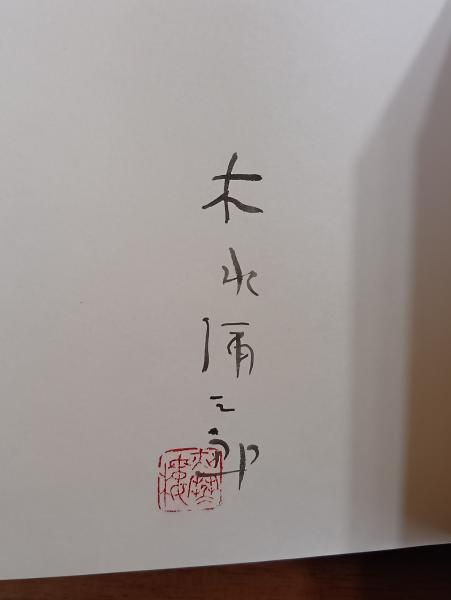 木水彌三郎